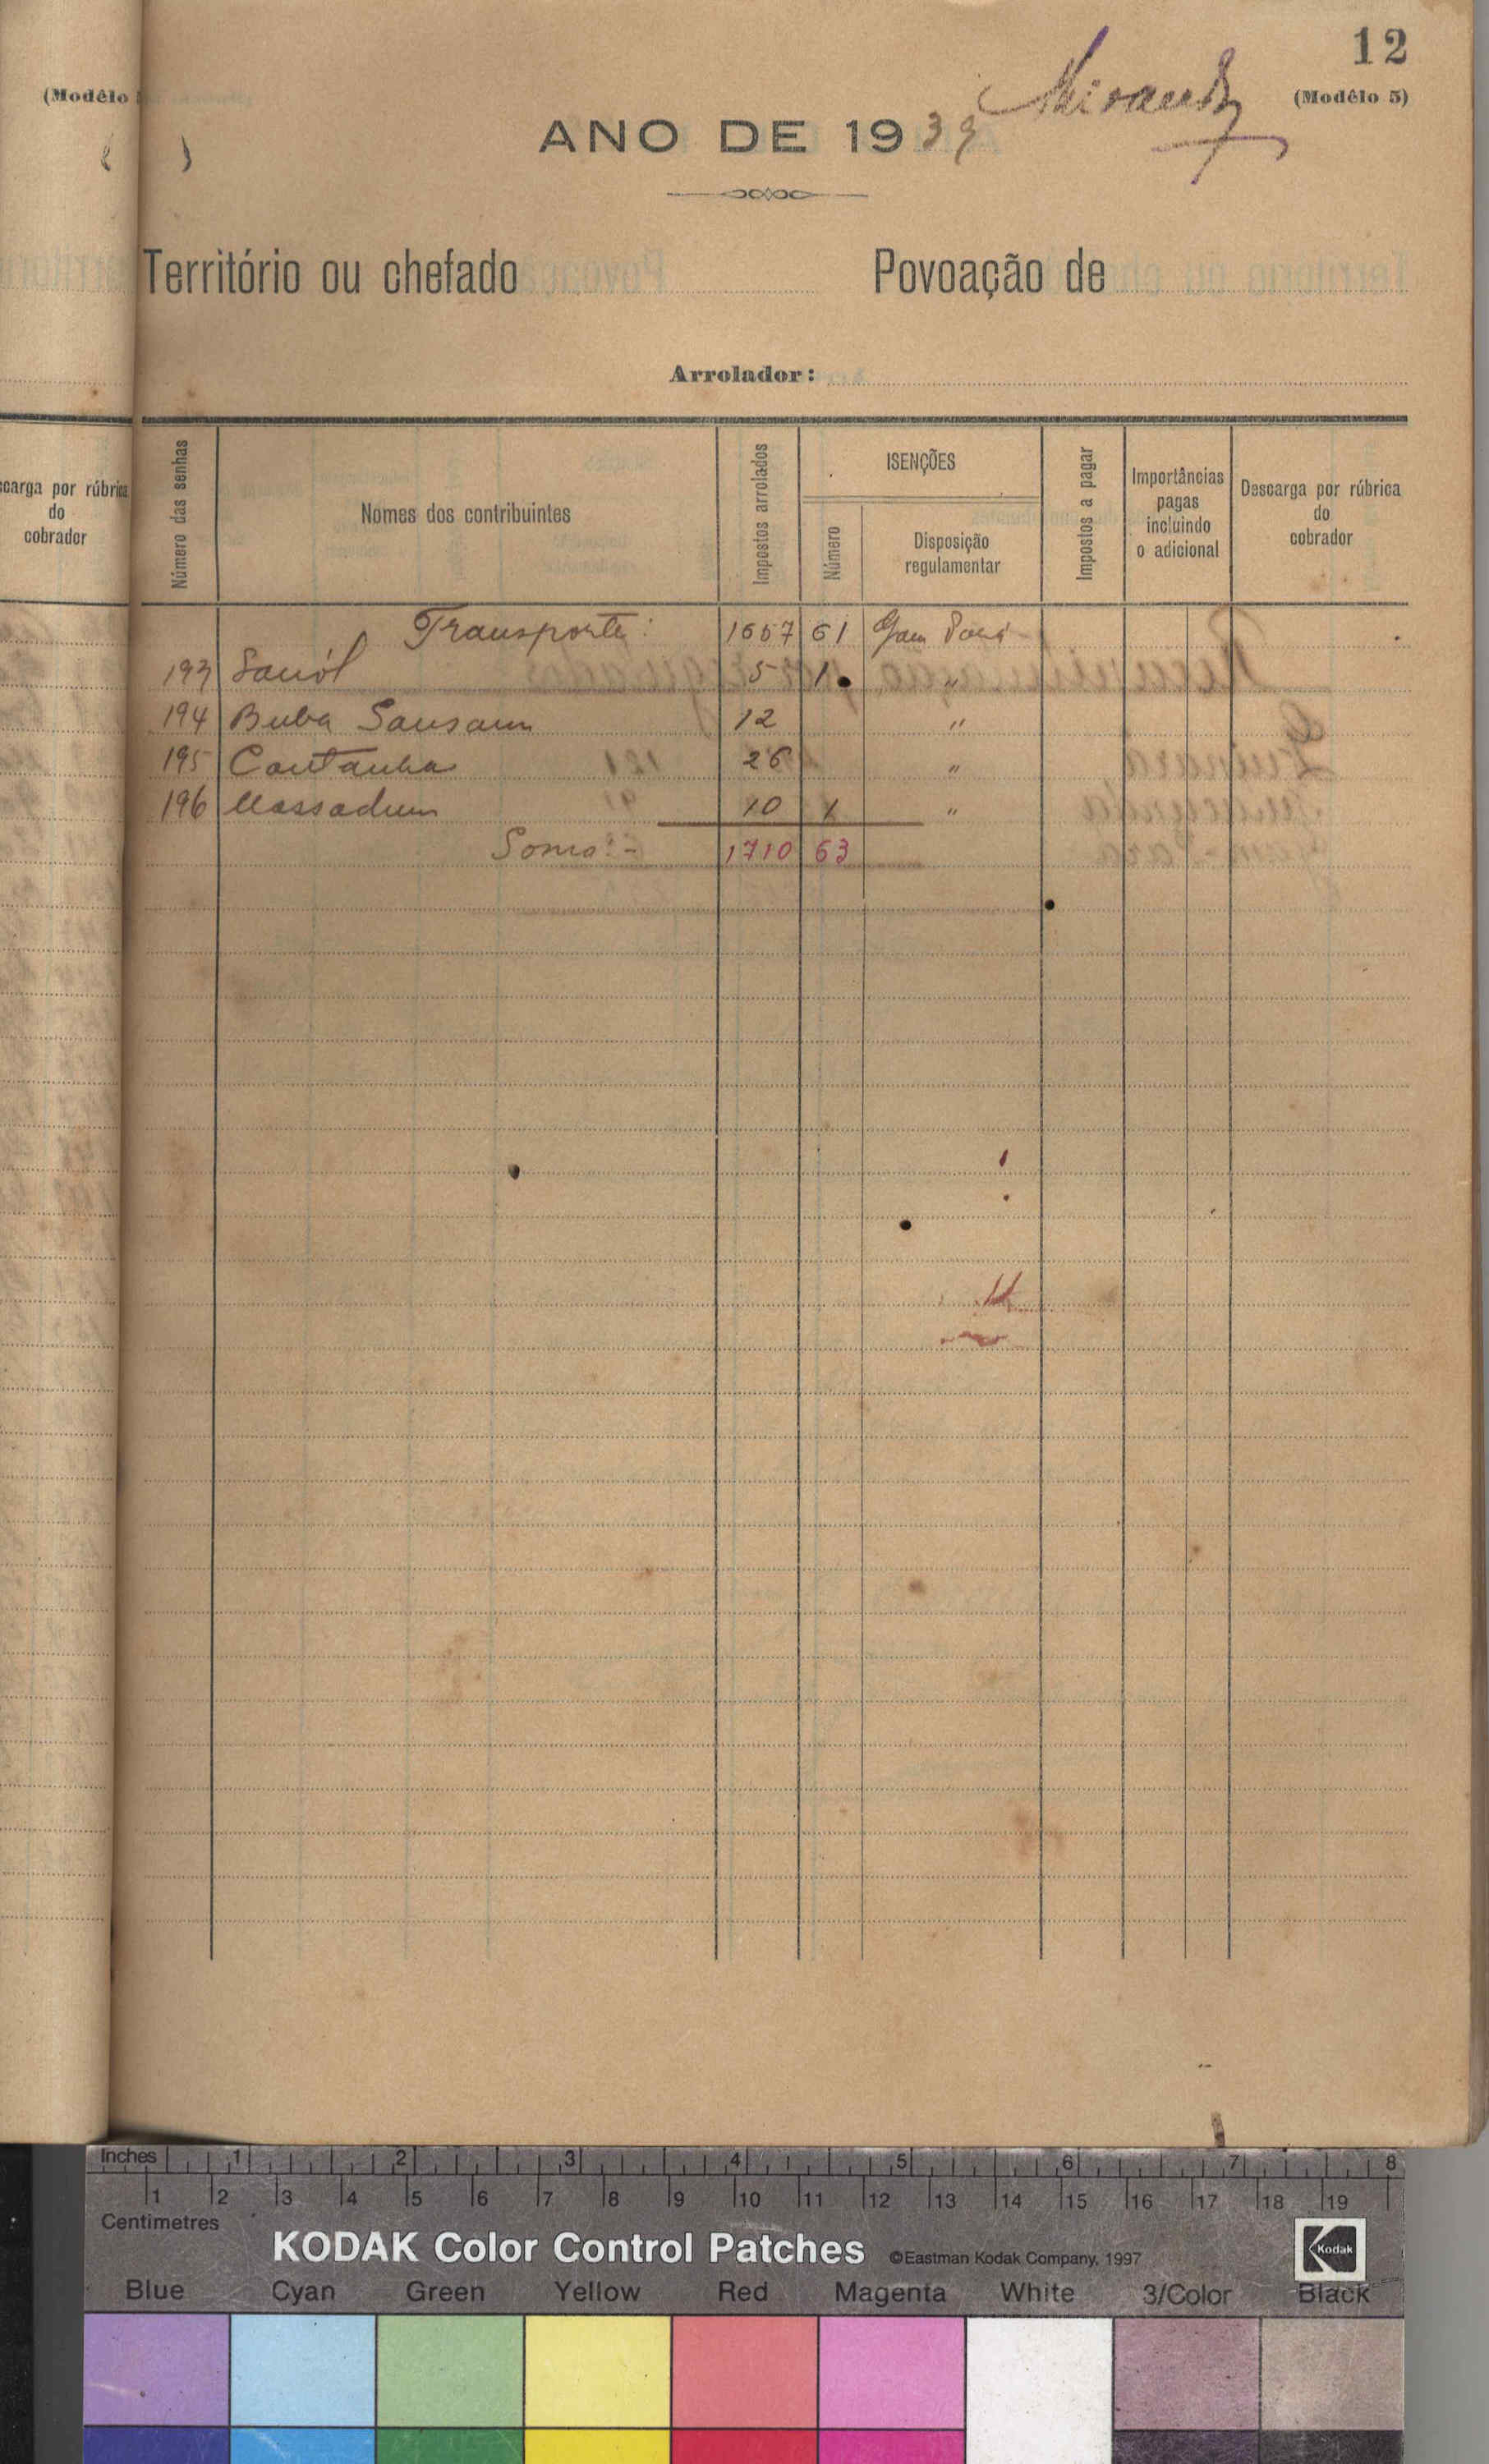 12
Miranda
(Modêlo 5)
(Modêlo
ANO DE 1939
Território ou chefado
Povoação de
Arrolador:
carga por rúbrica
do
cobrador
Número das senhas
Nomes dos contribuintes
Impostos arrolados
ISENÇÕES
Número
Disposição
regulamentar
Impostos a pagar
Importâncias
pagas
incluindo
o adicional
Descarga por rúbrica
do
cobrador
Transporte: 1657 61 Gam Pará
193 Sanól 5 1 "
194 Buba Sansaun 12 "
195 Cantanha 26 "
196 Massadum 10 1 "
Soma:- 1710 63
Inches 1 2 3 4 5 6 7 8
1 2 3 4 5 6 7 8 9 10 11 12 13 14 15 16 17 18 19
Centimetres
KODAK Color Control Patches ©Eastman Kodak Company, 1997 Kodak
Blue Cyan Green Yellow Red Magenta White 3/Color Black